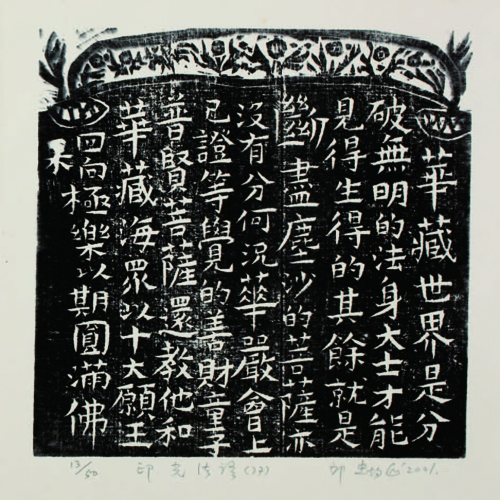 華藏世界是分
破無明的法身大士才能
見得生得的其餘就是
斷盡塵沙的菩薩亦
沒有分何況華嚴會上
已證等覺的善財童子
普賢菩薩還教他和
華藏海眾以十大願王
回向極樂以期圓滿佛
果
13/50
印光法語(17)
2001.